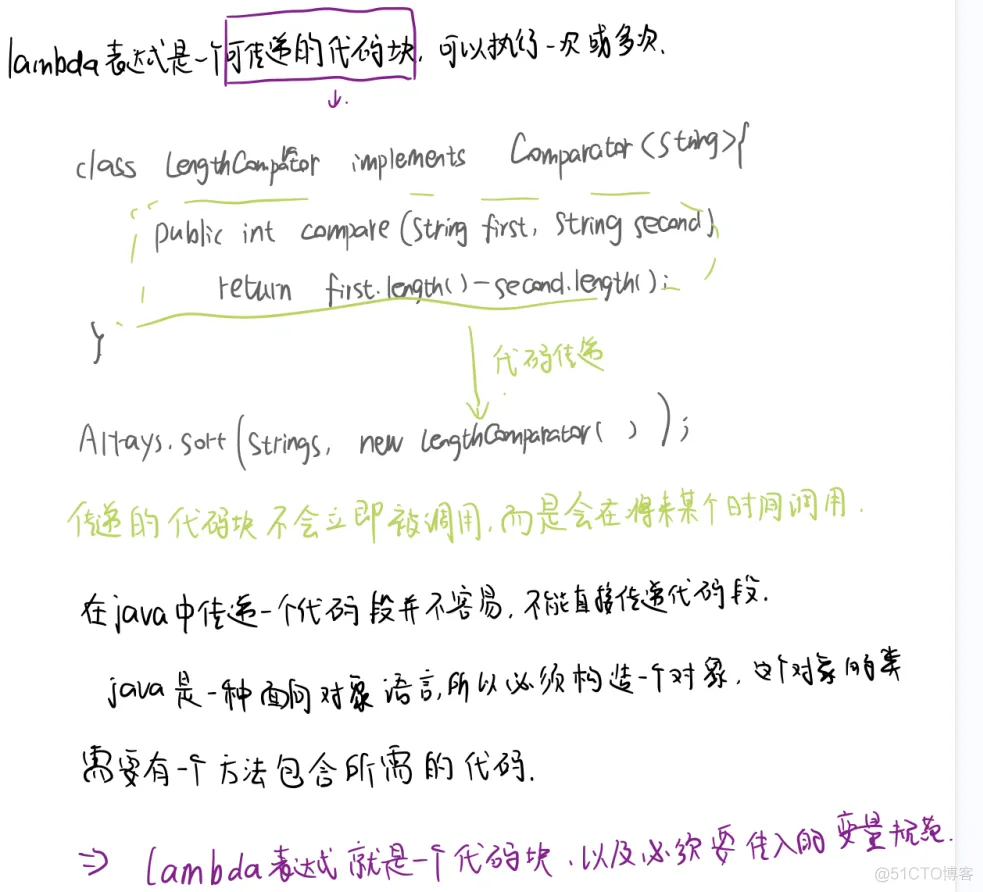 lambda表达式是一个可传递的代码块, 可以执行一次或多次.
class LengthComparator implements Comparator<String>{
public int compare(String first, String second)
return first.length()-second.length();
}
代码传递
Arrays.sort(Strings, new LengthComparator( ));
传递的代码块不会立即被调用,而是会在将来某个时间调用.
在java中传递一个代码段并不容易,不能直接传递代码段.
java是一种面向对象语言,所以必须构造一个对象,这个对象的类
需要有一个方法包含所需的代码.
⇒ lambda表达式就是一个代码块、以及必须要传入的变量规范.
@51CTO博客